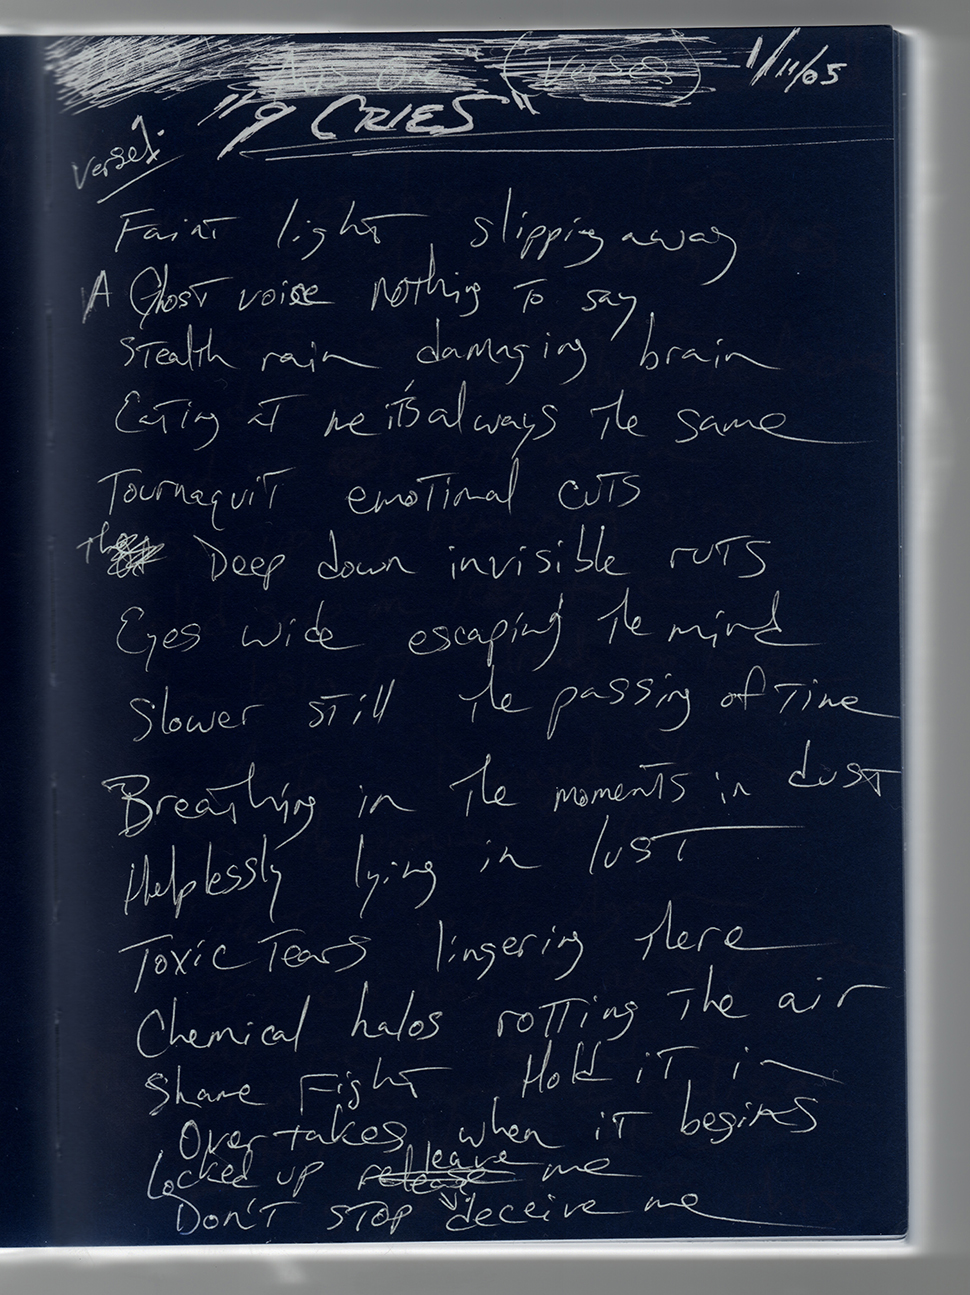 (Verses) 1/11/05
"9 CRIES"
Verse 1.
Faint light slipping away
A Ghost voice nothing to say
Stealth rain damaging brain
Eating at me it's always the same
Tournaquit emotional cuts
The Deep down invisible ruts
Eyes wide escaping the mind
Slower still the passing of time
Breathing in the moments in dust
Helplessly lying in lust
Toxic Tears lingering there
Chemical halos rotting the air
Shame Fight Hold it in
Overtakes when it begins
leave
Locked up release me
Don't stop deceive me